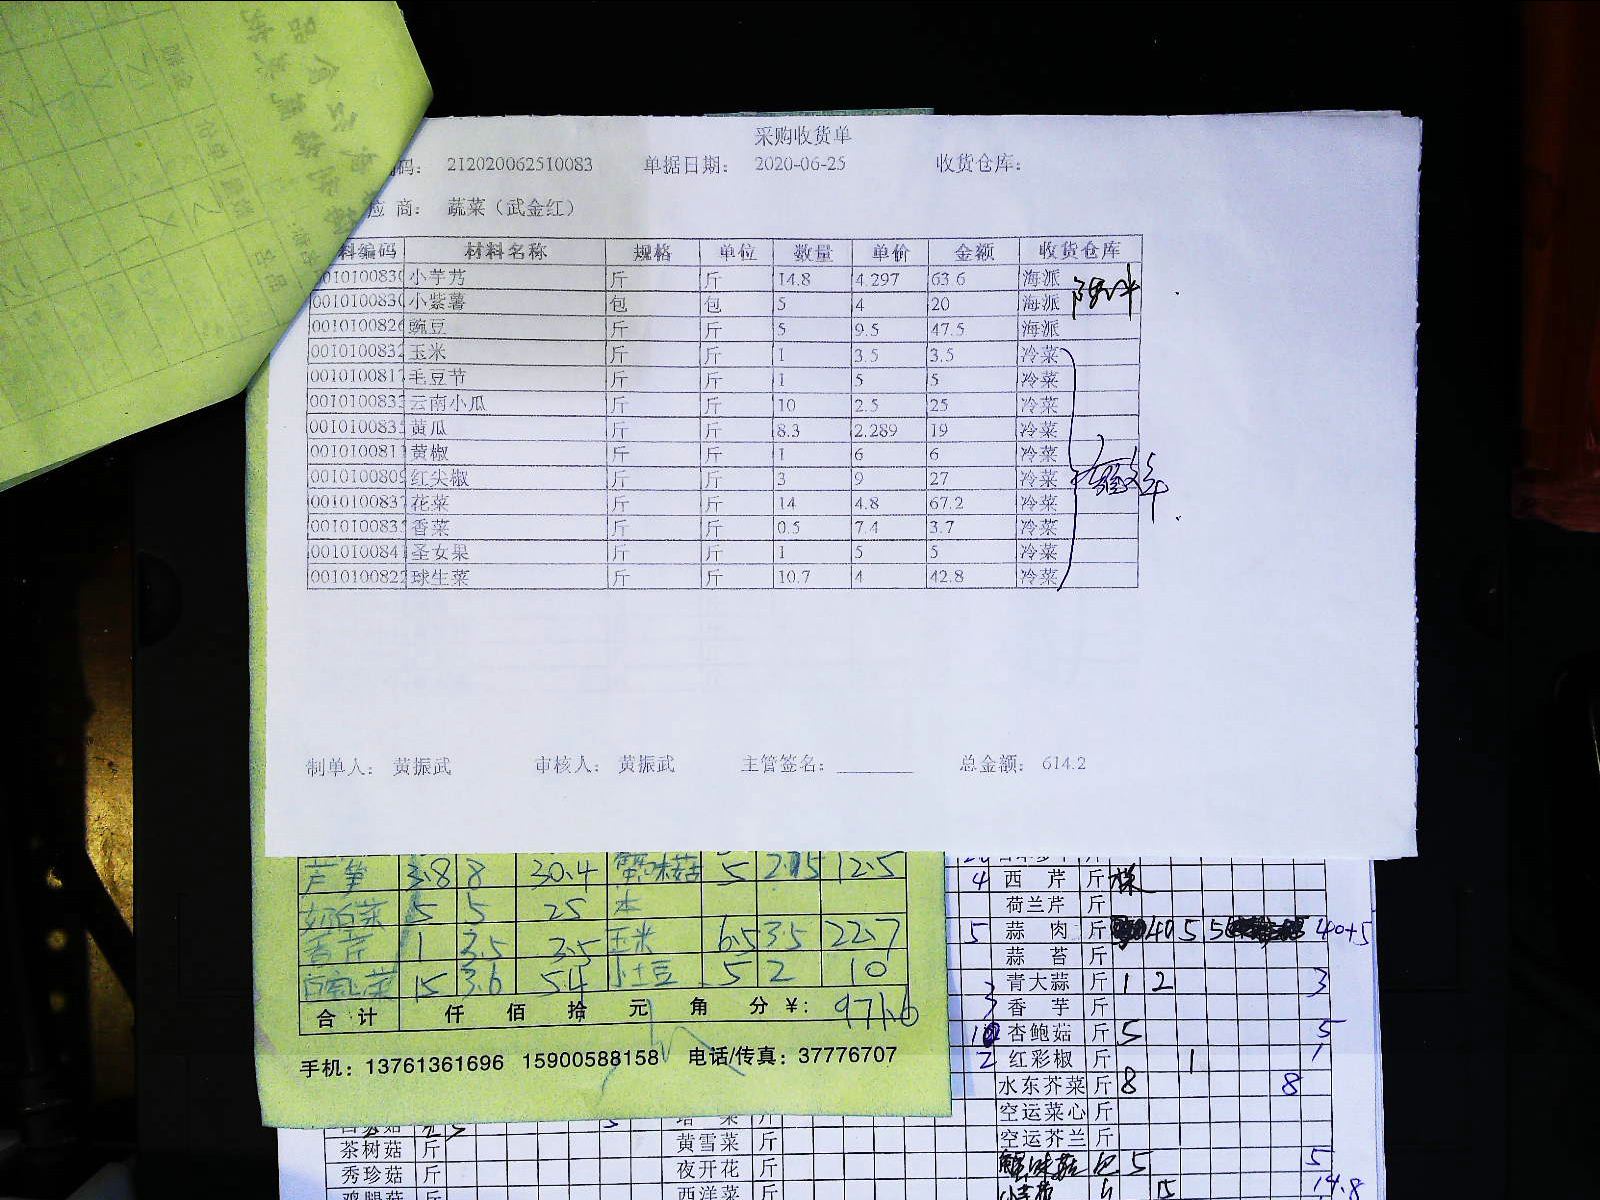 采购收货单
码： 212020062510083 单据日期： 2020-06-25 收货仓库：
应 商： 蔬菜（武金红）
料编码 材料名称 规格 单位 数量 单价 金额 收货仓库
0010100830 小芋艿 斤 斤 14.8 4.297 63.6 海派
0010100830 小紫薯 包 包 5 4 20 海派
0010100826 豌豆 斤 斤 5 9.5 47.5 海派
0010100832 玉米 斤 斤 1 3.5 3.5 冷菜
0010100817 毛豆节 斤 斤 1 5 5 冷菜
0010100833 云南小瓜 斤 斤 10 2.5 25 冷菜
001010083 黄瓜 斤 斤 8.3 2.289 19 冷菜
001010081 黄椒 斤 斤 1 6 6 冷菜
0010100809 红尖椒 斤 斤 3 9 27 冷菜
0010100837 花菜 斤 斤 14 4.8 67.2 冷菜
001010083 香菜 斤 斤 0.5 7.4 3.7 冷菜
001010084 圣女果 斤 斤 1 5 5 冷菜
0010100822 球生菜 斤 斤 10.7 4 42.8 冷菜
制单人： 黄振武 审核人： 黄振武 主管签名：________ 总金额： 614.2
芦笋 3.8 8 30.4 蟹味菇 5 12.5
奶白菜 5 5 25 本
香芹 1 3.5 3.5 玉米 6.5 3.5 22.7
15 3.6 54 小土豆 5 2 10
合 计 仟 佰 拾 元 角 分 ¥： 971.6
手机：13761361696 15900588158 电话/传真：37776707
4 西 芹 斤
荷兰芹 斤
5 蒜 肉 斤 40 5 5 40+5
蒜 苔 斤
青大蒜 斤 1 2 3
3 香 芋 斤
10 杏鲍菇 斤 5 5
2 红彩椒 斤 1 1
水东芥菜 斤 8 8
空运菜心 斤
空运芥兰 斤
蟹味菇 包 5 5
15 14.8
斤 5
菜 斤
茶树菇 斤 黄雪菜 斤
秀珍菇 斤 夜开花 斤
鸡腿菇 斤 西洋菜 斤